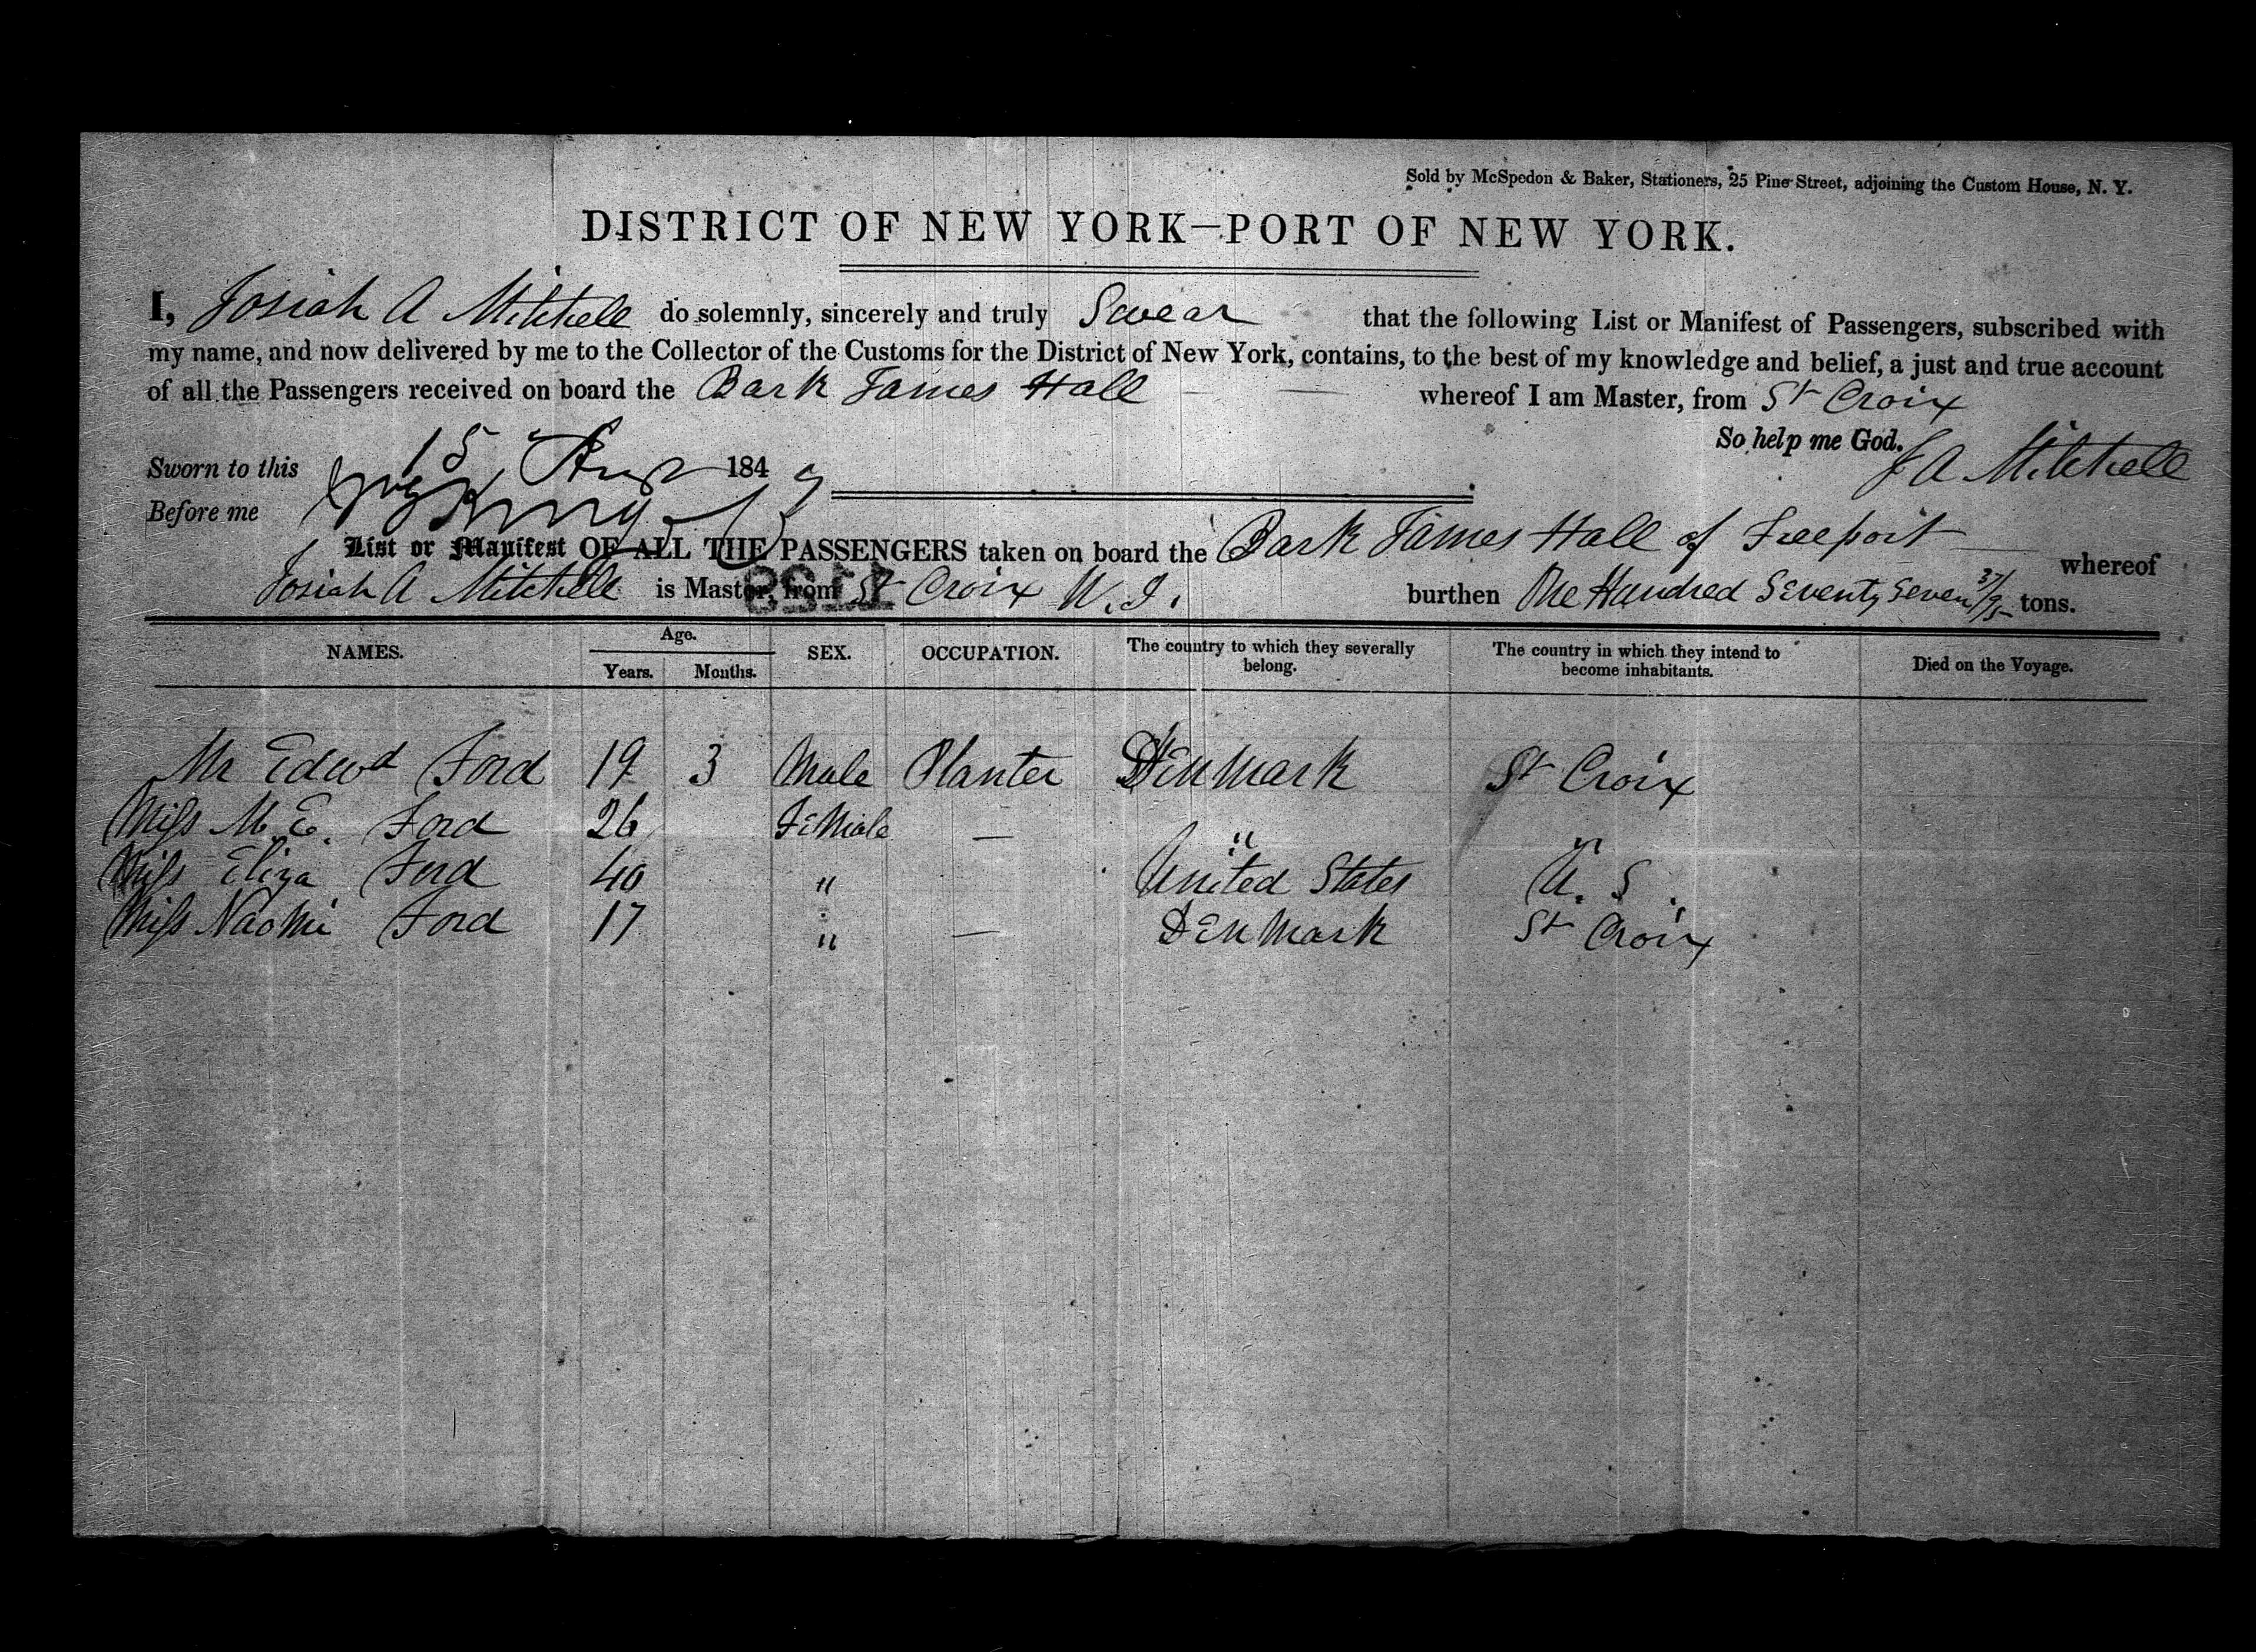 Sold by McSpedon & Baker, Stationers, 25 Pine Street, adjoining the Custom House, N. Y.
DISTRICT OF NEW YORK—PORT OF NEW YORK.
I, Josiah A Mitchell do solemnly, sincerely and truly Swear that the following List or Manifest of Passengers, subscribed with
my name, and now delivered by me to the Collector of the Customs for the District of New York, contains, to the best of my knowledge and belief, a just and true account
of all the Passengers received on board the Bark James Hall whereof I am Master, from St Croix
So help me God. J A Mitchell
Sworn to this 15 184 9
Before me
List or Manifest OF ALL THE PASSENGERS taken on board the Bark James Hall of Freeport whereof
Josiah A Mitchell is Master, from St Croix W. I. burthen One Hundred Seventy Seven 37/95 tons.
NAMES. Age. SEX. OCCUPATION. The country to which they severally belong. The country in which they intend to become inhabitants. Died on the Voyage.
Years. Months.
Mr Edwd Ford 19 3 Male Planter Denmark St Croix
Miss M. E. Ford 26 Female — " "
Miss Eliza Ford 40 " United States U. S.
Miss Naomi Ford 17 " — Denmark St Croix